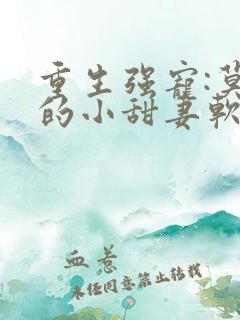 重生强宠:莫
的小甜妻軟
血惹
未任同意禁止转载